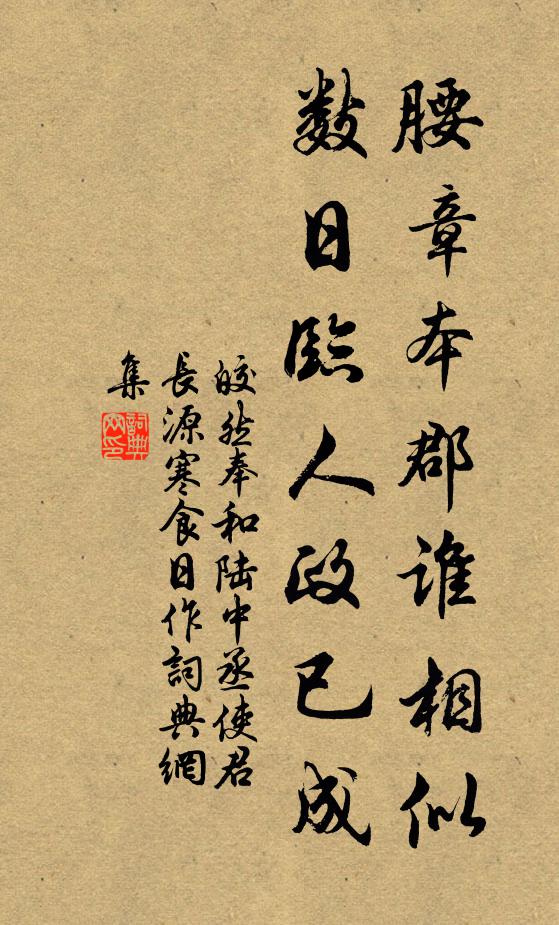 腰章本郡誰相似
數日臨人政已成
皎然奉和陸中丞使君
長源寒食日作詞典網
集
詞典網印